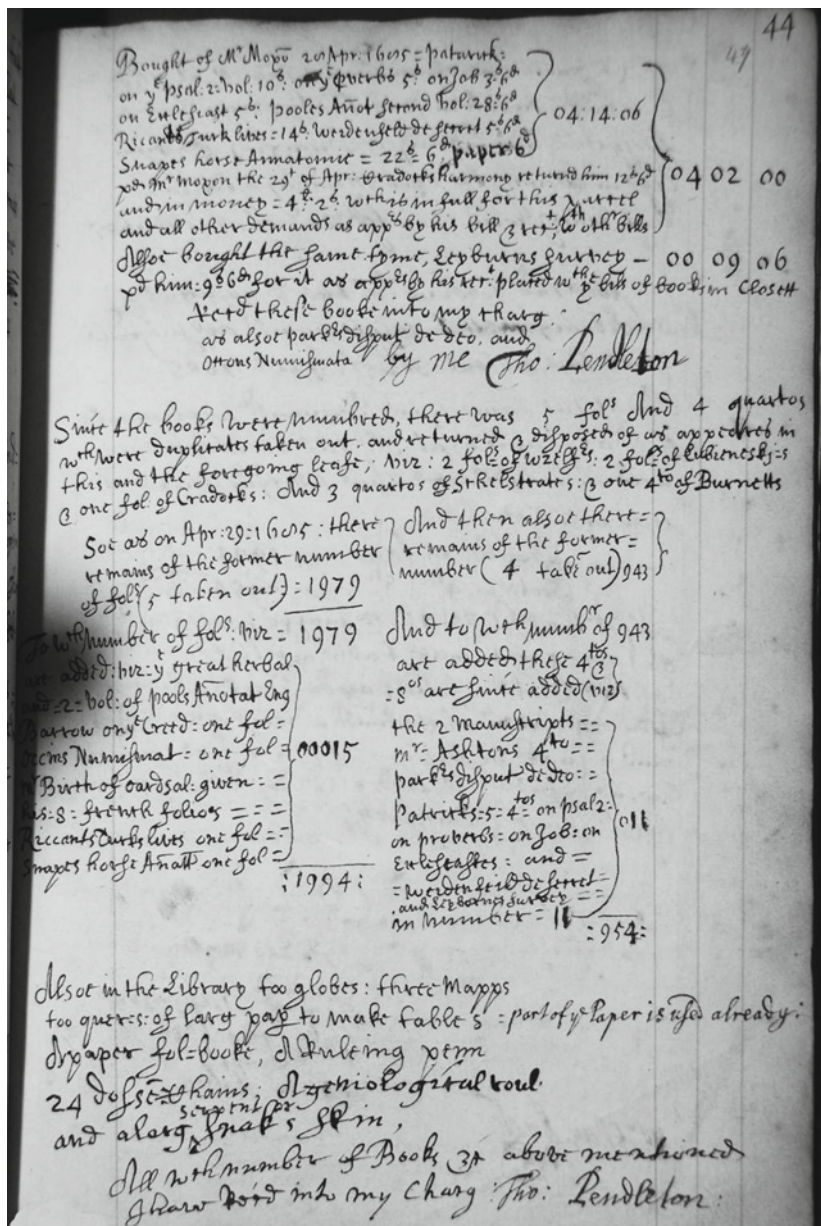 44
49
Bought of Mr Moxō 20 Apr: 1685 = Patarick:
on ye psal: 2: vol: 10s on ye pverbs 5s on Job 3s: 6d
on Ecclesiast 5s: Pooles Añot second vol: 28s: 6d
Ricants Turk lives = 14s: Werdenfeld de secret 5s: 6d
Snapes horse Annatomie = 22s = 6d paper 6d
04:14:06
pd: mr Moxon the 29t of Apr: Cradocks harmony returned him 12s 6d
and in money = 4li: 2s: wch is in full for this parcel
and all other demands as appes by his bill & rect, wth othr bills
04 02 00
Alsoe bought the same tyme, Leyburns survey – 00 09 06
pd him: 9s: 6d for it as appes by his rect: placed wth ye bills of book in Closett
Recd these booke into my charg:
as alsoe parkrs disput de deo. and
Ottons Numismata by me Tho: Pendleton
Since the books were numbred, there was 5 fols And 4 quartos
wch were duplicates taken out, and returned & disposed of as appeares in
this and the foregoing leafe, viz: 2 fols: of 2 fol: of Lubieneski=s
& one fol: of Cradocks: And 3 quartos of Schelstrates: & one 4to of Burnetts
Soe as on Apr: 29: 1685: there
remains of the former number
of fols (5 taken out) = 1979
And then alsoe there =
remains of the former =
number (4 takē out) 943
To wch number of fols: viz = 1979
are added: viz = ye great herbal
and = 2 = vol: of pools Añotat Eng
Barrow on ye Creed = one fol =
Numismat = one fol =
mr Birch of cardsal: given: =
his = 8 = french folios = = =
Riccants Turks lives one fol = =
Snapes horse Añatt one fol =
00015
:1994:
And to wch numbr of 943
are added these 4tos &
= 8os are since added (viz)
the 2 Manuscripts = =
mr = Ashtons 4to = =
parkrs disput de deo: =
Patricks = 5 = 4tos on psal 2:
on proverbs = on Job = on
Ecclesiastes: and =
= werdenfeild de secret =
and Leybornes survey = =
in number = 11
011
:954:
Alsoe in the Library too globes: three Mapps
too quers: of larg papr to make table s = part of ye Paper is used already:
A paper fol = booke, A Ruleing penn
24 chains; A geniological roul
serpent or
and a larg snak's skin,
All wch number of Books &c above mentioned
I have recd into my Charg: Tho: Pendleton: